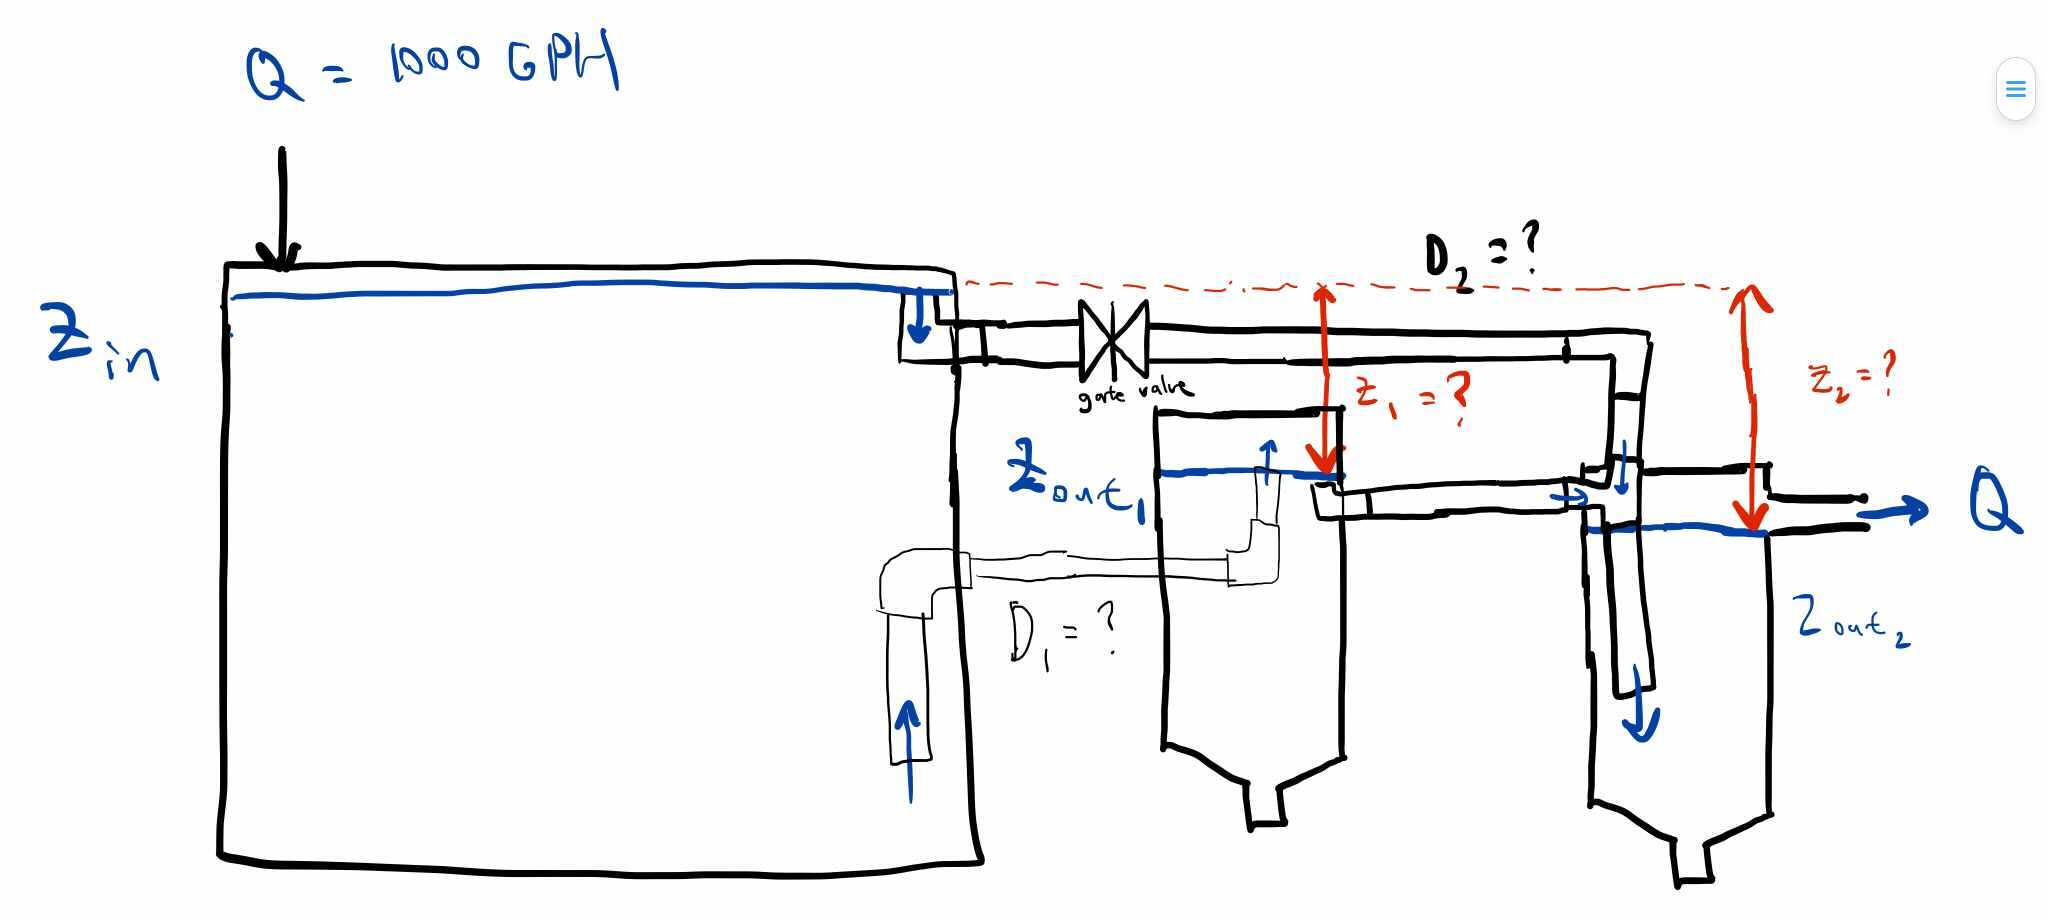 Q = 1000 GPH
D₂ = ?
Z in
gate valve
z₁ = ?
z₂ = ?
Z out₁
Q
D₁ = ?
Z out₂